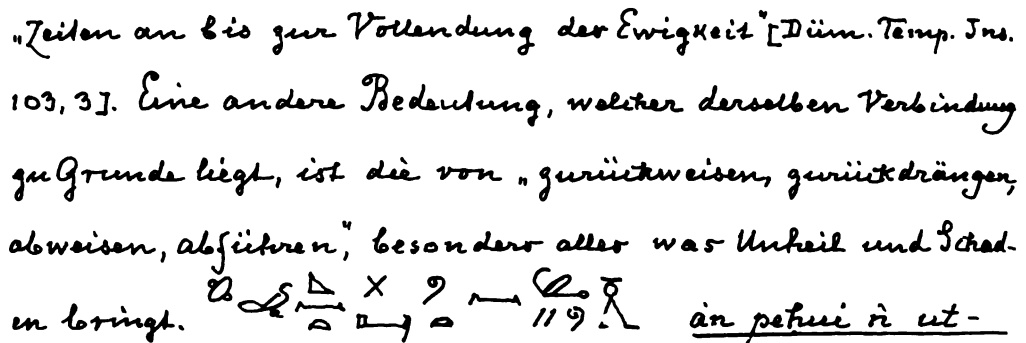 „Zeiten an bis zur Vollendung der Ewigkeit" [Düm. Temp. Ins.
103, 3]. Eine andere Bedeutung, welcher derselben Verbindung
zu Grunde liegt, ist die von „zurückweisen, zurückdrängen,
abweisen, abführen", besonders alles was Unheil und Schad-
en bringt. ȧn peḥui n ut-